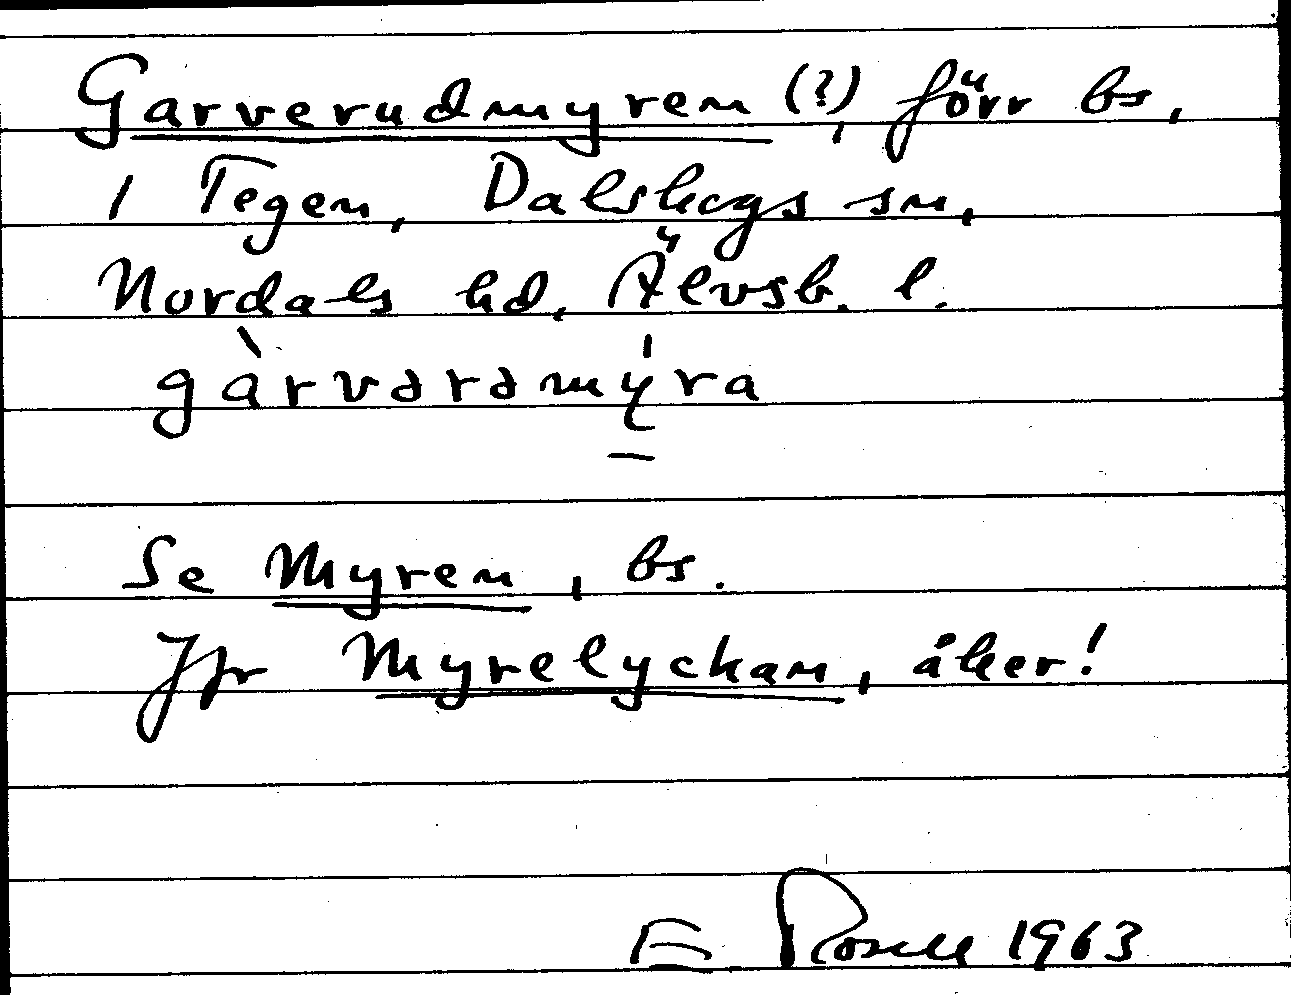 Garverudmyren (?), förr bs,
i Tegen, Dalskogs sn,
Nordals hd, Älvsb. l.
gàrvərəmýra
Se Myren, bs.
Jfr Myrelyckan, åker!
E Rosell 1963